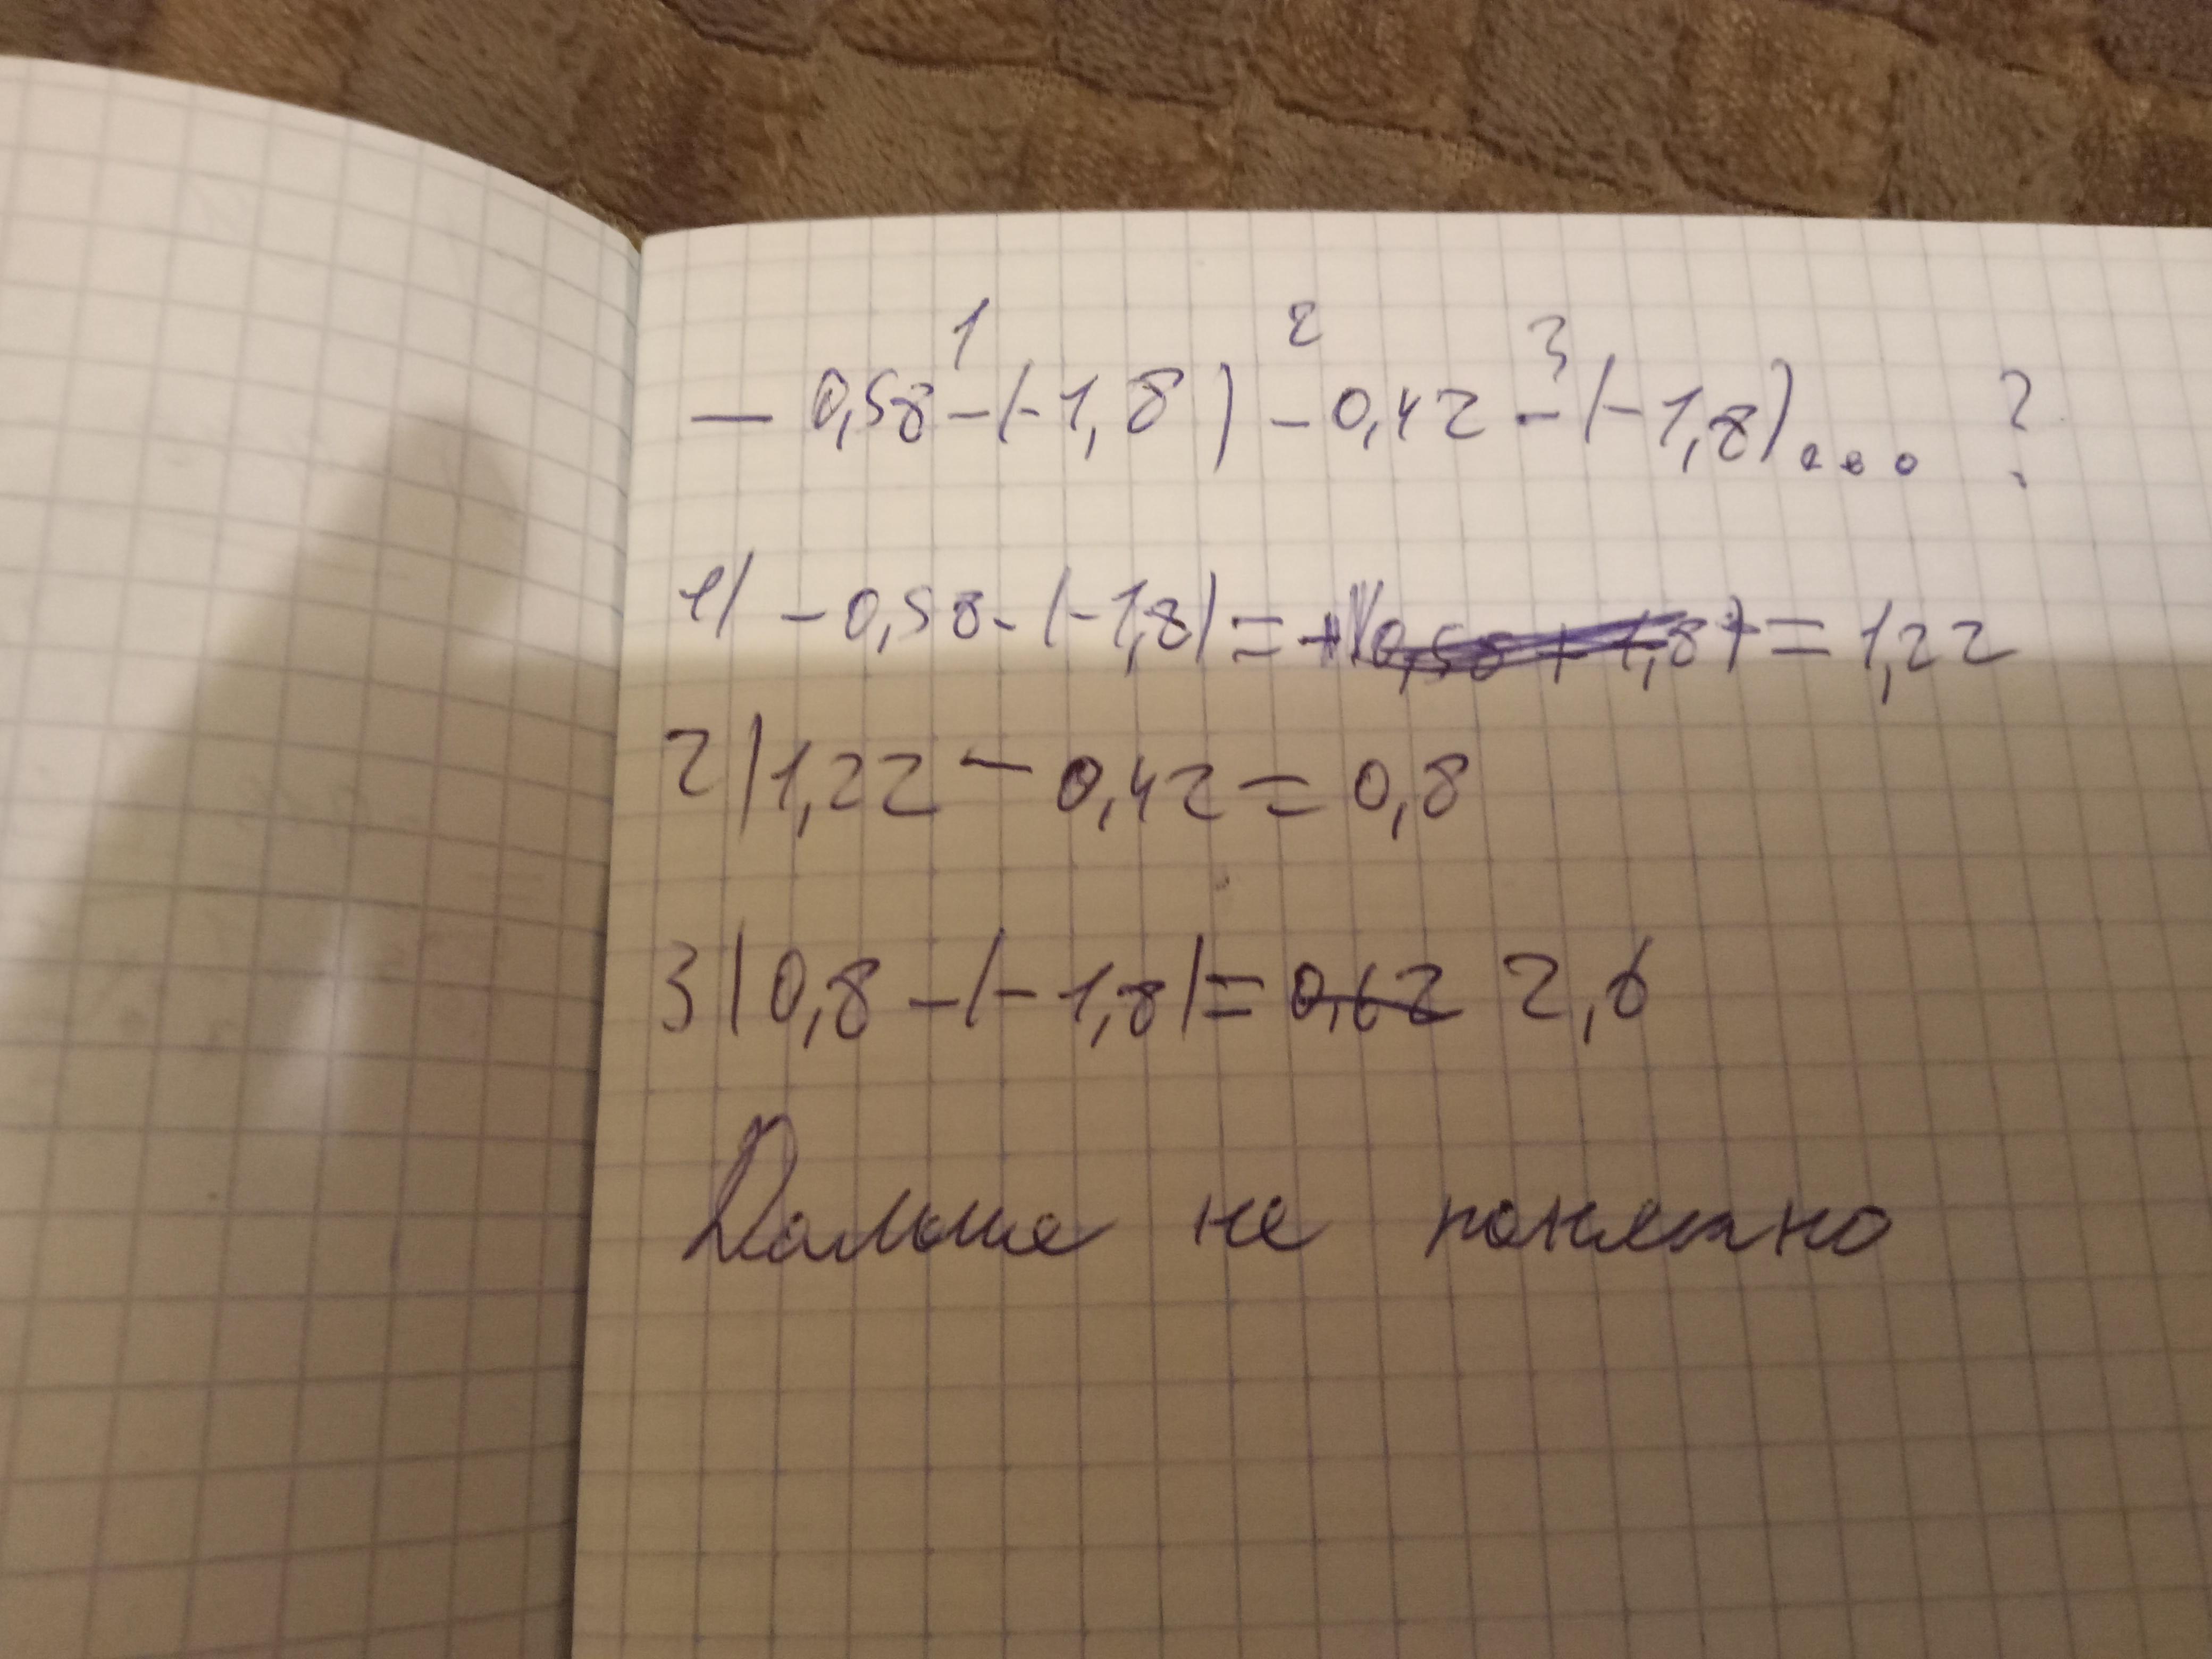 1 2 3
- 0,58 - (-1,8) - 0,42 - (-1,8)... ?
1) - 0,58 - (-1,8) = + (0,58 + 1,8) = 1,22
2) 1,22 - 0,42 = 0,8
3) 0,8 - (-1,8) = 0,62 2,6
Дальше не понятно